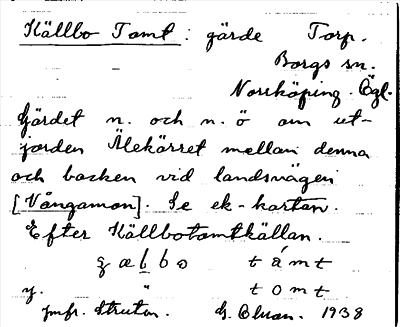 Källbo Tomt : gärde Torp.
Borgs sn.
Norrköping. Ögl.
Gärdet n. och n. ö om ut-
jorden Ålekärret mellan denna
och backen vid landsvägen
[Vångamon]. Se ek-kartan.
Efter Källbotomtkällan.
ȥ æ l b o t å m t
y. " t o m t
jmfr. Strutan. G. Clson. 1938